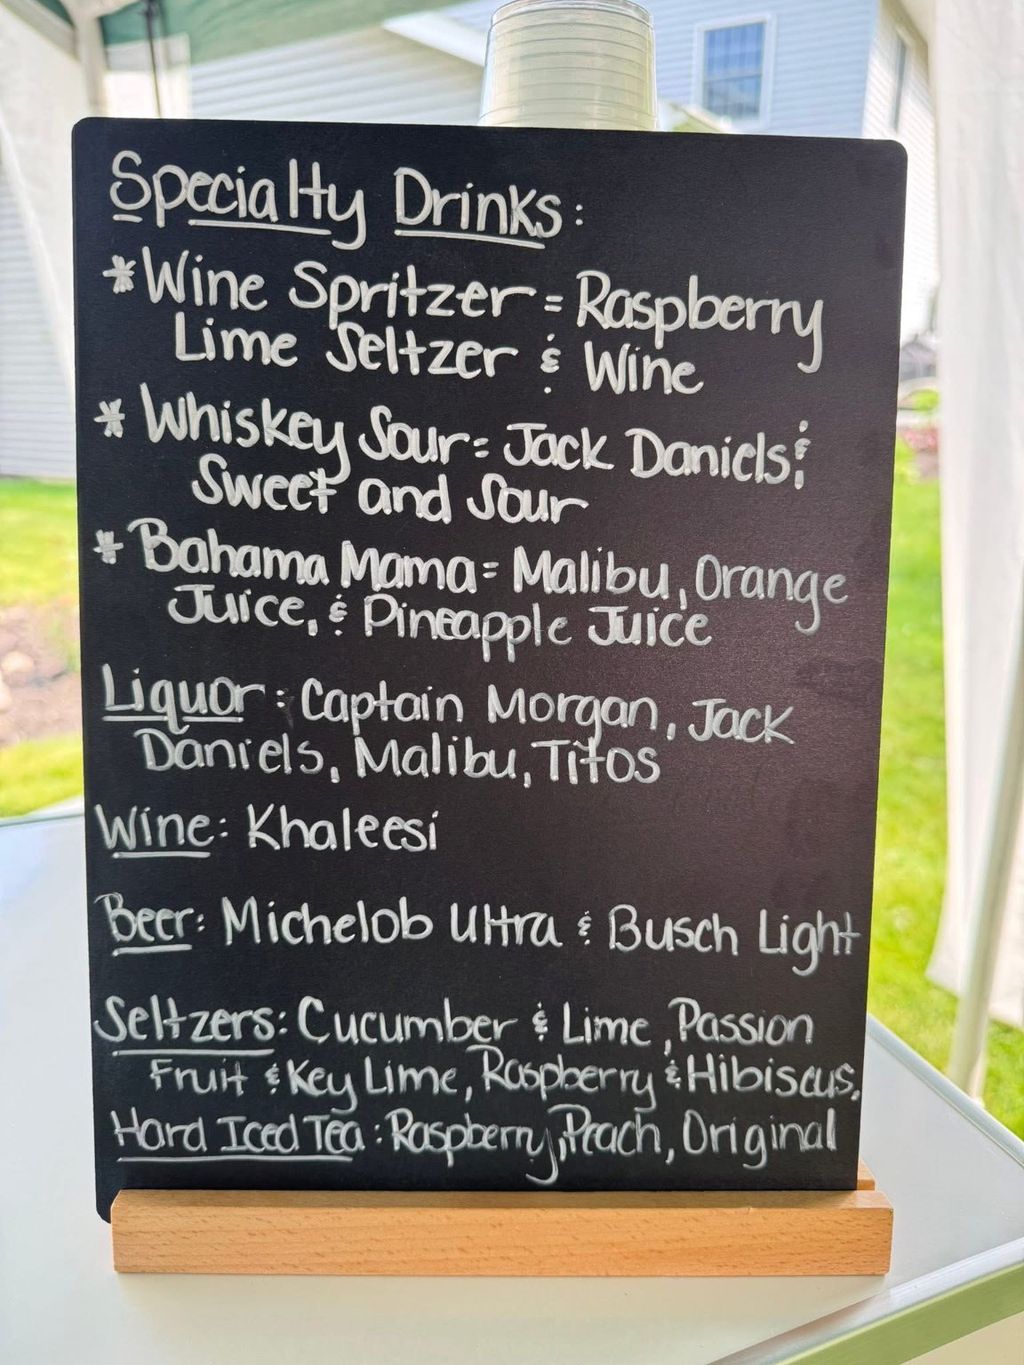 Specialty Drinks:
* Wine Spritzer = Raspberry
Lime Seltzer & Wine
* Whiskey Sour = Jack Daniels &
Sweet and Sour
* Bahama Mama = Malibu, Orange
Juice, & Pineapple Juice
Liquor: Captain Morgan, Jack
Daniels, Malibu, Titos
Wine: Khaleesi
Beer: Michelob Ultra & Busch Light
Seltzers: Cucumber & Lime, Passion
Fruit & Key Lime, Raspberry & Hibiscus,
Hard Iced Tea: Raspberry, Peach, Original